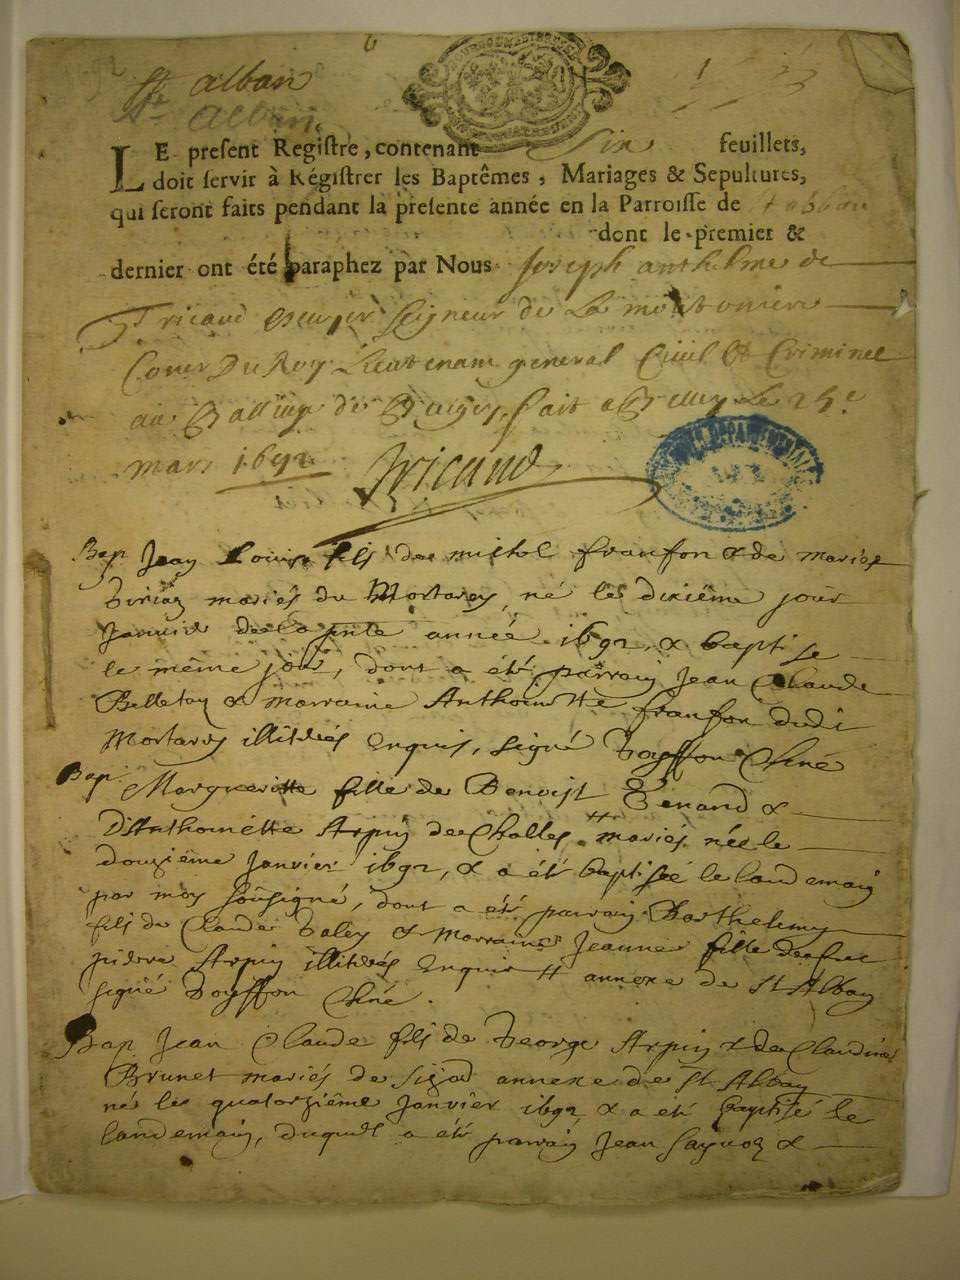 6
St alban
St Alban
LE present Registre, contenant Six feuillets,
doit servir à Régistrer les Baptêmes, Mariages & Sepultures,
qui seront faits pendant la presente année en la Parroisse de St alban
dont le premier &
dernier ont été paraphez par Nous Joseph anthelme de
Tricaud escuyer seigneur de La
Coner Du Roy Lieutenant general Civil & Criminel
au Balliage de Bugey, fait a Belley Le 25e
mars 1692 Tricaud
Bap Jean Louis fils de michel franson & de marie
mariés du Mortarey, né le dixième jour
Janvier de la pnte année 1692, & baptisé
le même jour, dont a été parrain Jean Claude
Belletay & marraine Anthoinette franson dudt
Mortarey illitérés enquis, signé
Bap. Margueritte fille de Benoist &
D'Anthoinette Arpin de Challes mariés née le
douzième Janvier 1692, & a été baptisée le landemain
par moy soussigné, dont a été parrain Barthelemy
fils de Claude & marraine Jeanne fille de feu
pierre Arpin illitérés enquis # annexe de St Albany
signé
Bap Jean Claude fils de George Arpin & de Claudine
Brunet mariés de annexe de St Albany
né le quatorzième Janvier 1692 & a été baptisé le
landemain, duquel a été parrain Jean &